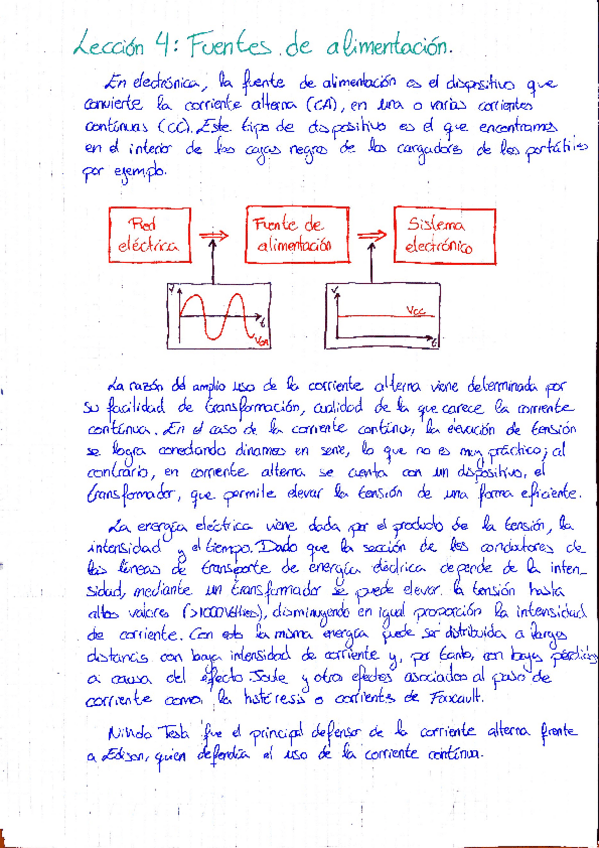 Lección 4: Fuentes de alimentación.
En electrónica, la fuente de alimentación es el dispositivo que
convierte la corriente alterna (CA), en una o varias corrientes
contínuas (CC). Este tipo de dispositivo es el que encontramos
en el interior de las cajas negras de los cargadores de los portátiles
por ejemplo.
Red eléctrica
⇒
Fuente de alimentación
⇒
Sistema electrónico
V
t
V
Vcc
t
La razón del amplio uso de la corriente alterna viene determinada por
su facilidad de transformación, cualidad de la que carece la corriente
contínua. En el caso de la corriente contínua, la elevación de tensión
se logra conectando dinamos en serie, lo que no es muy práctico; al
contrario, en corriente alterna se cuenta con un dispositivo, el
transformador, que permite elevar la tensión de una forma eficiente.
La energía eléctrica viene dada por el producto de la tensión, la
intensidad y el tiempo. Dado que la sección de los conductores de
las líneas de transporte de energía eléctrica depende de la inten-
sidad, mediante un transformador se puede elevar la tensión hasta
altos valores (>1000Voltios), disminuyendo en igual proporción la intensidad
de corriente. Con esto la misma energía puede ser distribuida a largas
distancias con baja intensidad de corriente y, por tanto, con bajas pérdidas
a causa del efecto Joule y otros efectos asociados al paso de
corriente como la histéresis o corrientes de Foucault.
Nikola Tesla fue el principal defensor de la corriente alterna frente
a Edison, quien defendía el uso de la corriente contínua.